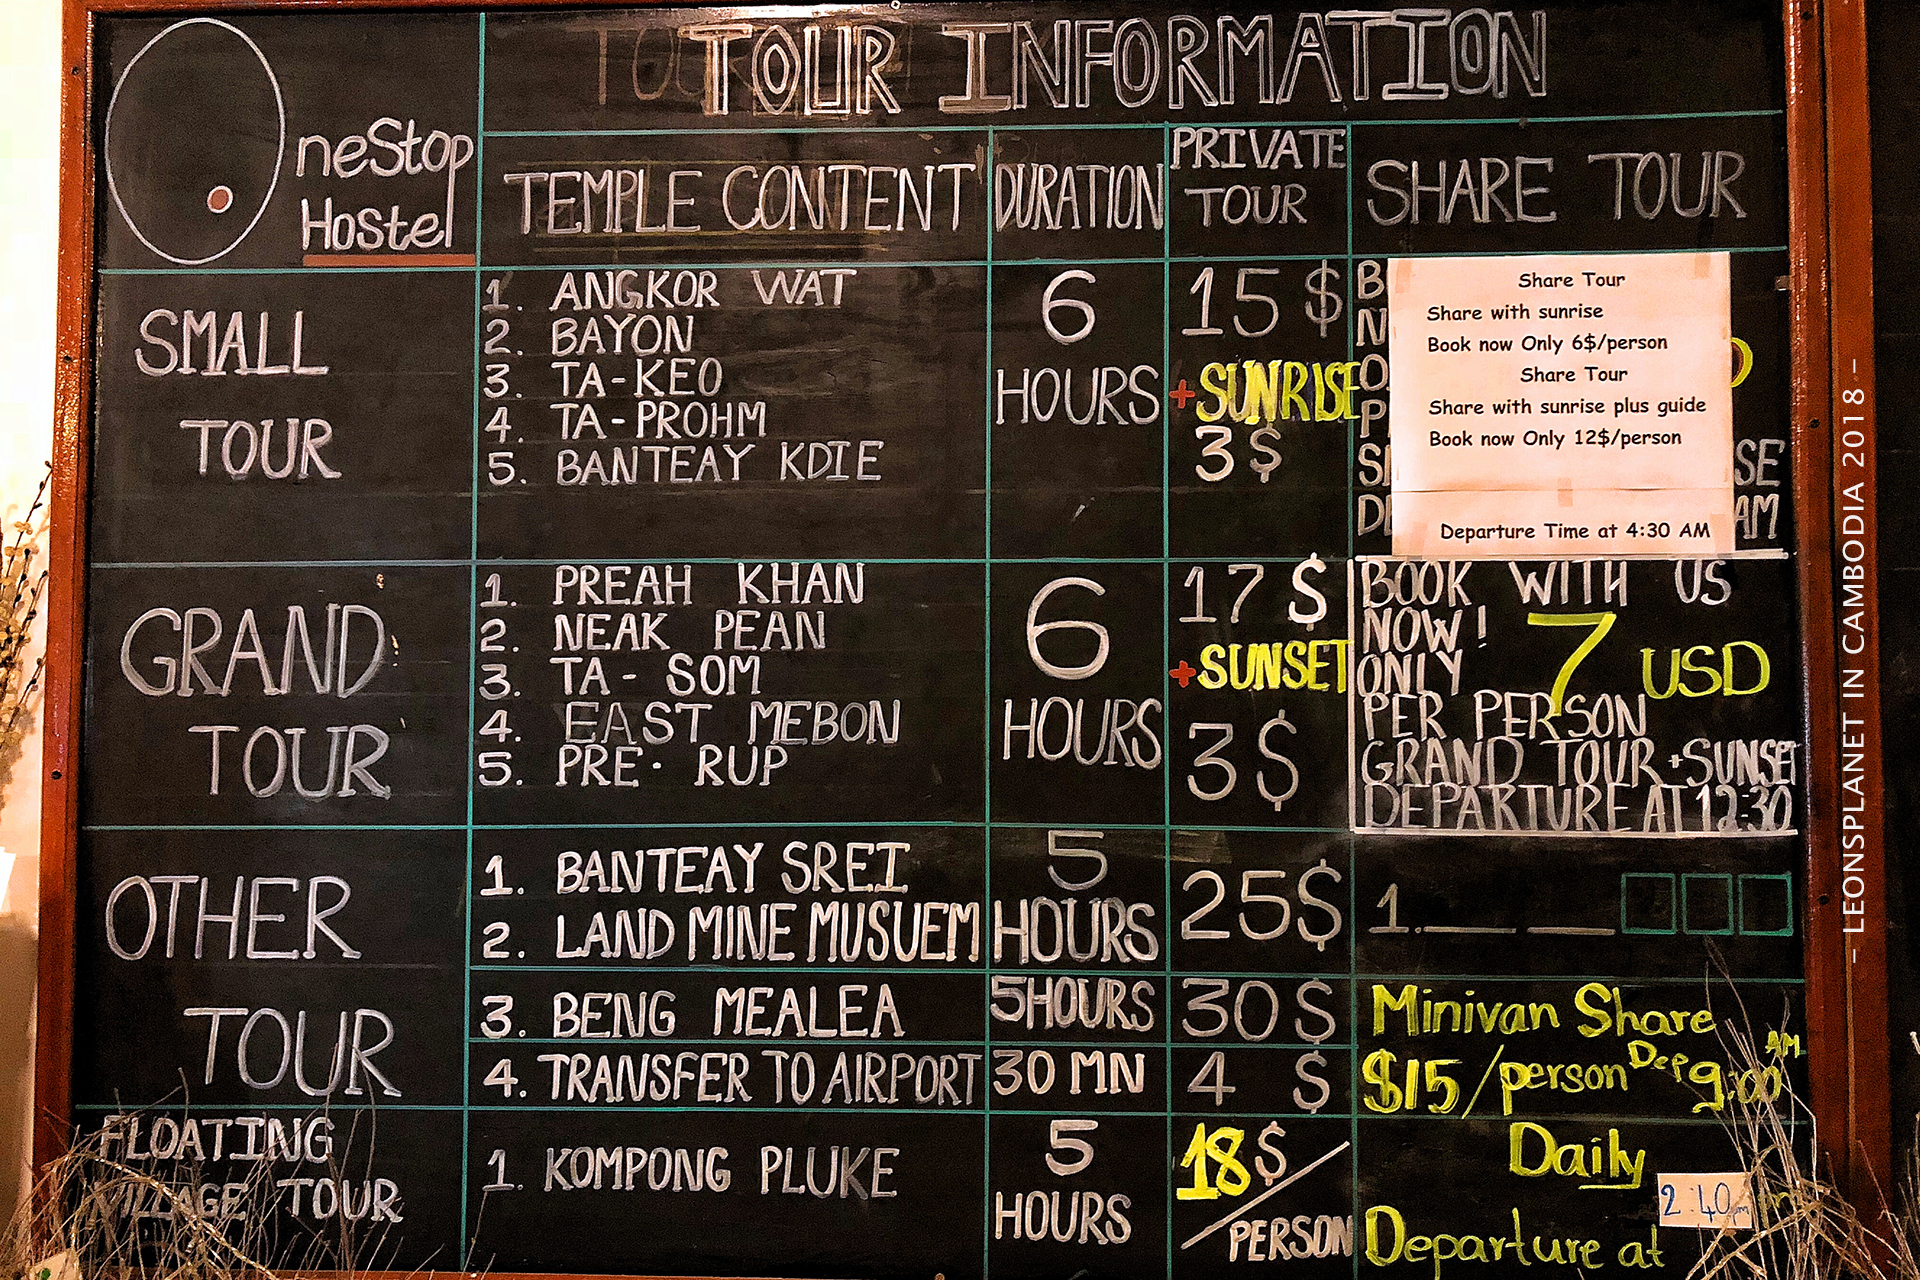 TOUR INFORMATION
OneStop
Hostel
TEMPLE CONTENT
DURATION
PRIVATE
TOUR
SHARE TOUR
SMALL
TOUR
1. ANGKOR WAT
2. BAYON
3. TA-KEO
4. TA-PROHM
5. BANTEAY KDIE
6
HOURS
15 $
+SUNRISE
3 $
Share Tour
Share with sunrise
Book now Only 6$/person
Share Tour
Share with sunrise plus guide
Book now Only 12$/person
Departure Time at 4:30 AM
SE
AM
GRAND
TOUR
1. PREAH KHAN
2. NEAK PEAN
3. TA- SOM
4. EAST MEBON
5. PRE- RUP
6
HOURS
17 $
+SUNSET
3 $
BOOK WITH US
NOW!
ONLY 7 USD
PER PERSON
GRAND TOUR+SUNSET
DEPARTURE AT 12:30
OTHER
TOUR
1. BANTEAY SREI
2. LAND MINE MUSUEM
5
HOURS
25$
1.
3. BENG MEALEA
5HOURS
30 $
4. TRANSFER TO AIRPORT
30 MN
4 $
Minivan Share
$15/person Dep 9:00 AM
FLOATING
VILLAGE TOUR
1. KOMPONG PLUKE
5
HOURS
18$/
PERSON
Daily
2:40pm
Departure at
- LEONSPLANET IN CAMBODIA 2018 -